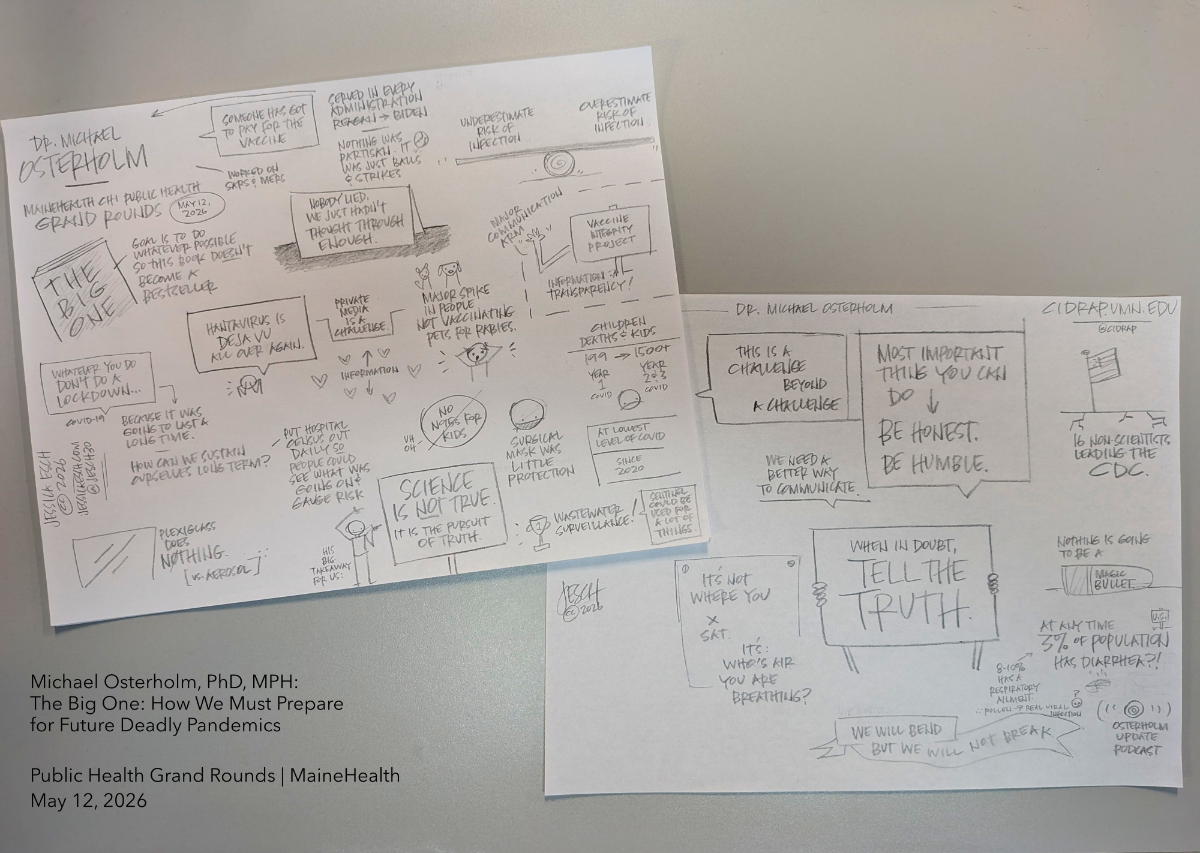 DR. MICHAEL
OSTERHOLM
MAINEHEALTH CHI PUBLIC HEALTH
GRAND ROUNDS
MAY 12,
2026
SOMEONE HAS GOT
TO PAY FOR THE
VACCINE
WORKED ON
SARS & MERS
SERVED IN EVERY
ADMINISTRATION
REAGAN → BIDEN
NOTHING WAS
PARTISAN. IT
WAS JUST BALLS
& STRIKES
UNDERESTIMATE
RISK OF
INFECTION
OVERESTIMATE
RISK OF
INFECTION
THE
BIG
ONE
GOAL IS TO DO
WHATEVER POSSIBLE
SO THIS BOOK DOESN'T
BECOME A
BESTSELLER
NOBODY LIED.
WE JUST HADN'T
THOUGHT THROUGH
ENOUGH.
MAJOR
COMMUNICATION
ARM
VACCINE
INTEGRITY
PROJECT
INFORMATION &
TRANSPARENCY!
HANTAVIRUS IS
DEJA VU
ALL OVER AGAIN.
PRIVATE
MEDIA
IS A
CHALLENGE.
INFORMATION
MAJOR SPIKE
IN PEOPLE
NOT VACCINATING
PETS FOR RABIES.
CHILDREN
DEATHS & KIDS
199 → 1500+
YEAR
1
COVID
YEAR
2 & 3
COVID
WHATEVER YOU DO
DON'T DO A
LOCKDOWN...
COVID-19
BECAUSE IT WAS
GOING TO LAST A
LONG TIME.
HOW CAN WE SUSTAIN
OURSELVES LONG TERM?
PUT HOSPITAL
CENSUS OUT
DAILY SO
PEOPLE COULD
SEE WHAT WAS
GOING ON &
GAUGE RISK
NO
NOTES FOR
KIDS
UH
OH
SURGICAL
MASK WAS
LITTLE
PROTECTION
AT LOWEST
LEVEL OF COVID
SINCE
2020
JESSICA ESCH
CC 2026
JESSICAESCH.COM
@JESCH30
PLEXIGLASS
DOES
NOTHING.
[VS. AEROSOL]
HIS
BIG
TAKEAWAY
FOR US:
SCIENCE
IS NOT TRUE.
IT IS THE PURSUIT
OF TRUTH.
WASTEWATER
SURVEILLANCE!
SENTINEL
COULD BE
USED FOR
A LOT OF
THINGS
DR. MICHAEL OSTERHOLM
CIDRAP.UMN.EDU
@CIDRAP
THIS IS A
CHALLENGE
BEYOND
A CHALLENGE
MOST IMPORTANT
THING YOU CAN
DO ↓
BE HONEST.
BE HUMBLE.
16 NON-SCIENTISTS
LEADING THE
CDC.
WE NEED A
BETTER WAY
TO COMMUNICATE.
JESCH
CC 2026
IT'S NOT
WHERE YOU
X
SAT.
IT'S:
WHO'S AIR
YOU ARE
BREATHING?
WHEN IN DOUBT,
TELL THE
TRUTH.
NOTHING IS GOING
TO BE A
MAGIC
BULLET
U.S.
AT ANY TIME
3% OF POPULATION
HAS DIARRHEA?!
8-10%
HAS A
RESPIRATORY
AILMENT.
POLLEN → REAL VIRAL
INFECTION
?
WE WILL BEND
BUT WE WILL NOT BREAK
OSTERHOLM
UPDATE
PODCAST
Michael Osterholm, PhD, MPH:
The Big One: How We Must Prepare
for Future Deadly Pandemics
Public Health Grand Rounds | MaineHealth
May 12, 2026